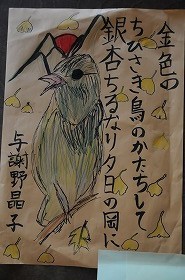 金色の
ちひさき鳥のかたちして
銀杏ちるなり夕日の岡に
与謝野晶子